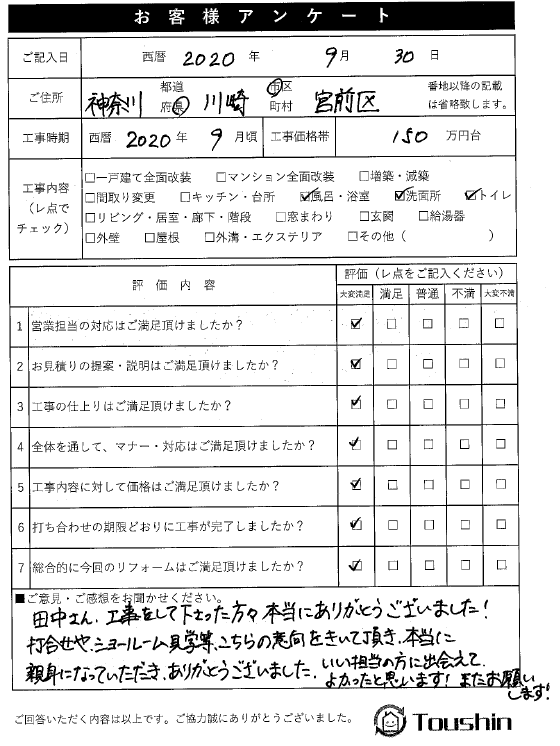 お客様アンケート
ご記入日 西暦 2020 年 9月 30 日
ご住所 神奈川 都道府県 川崎 市区町村 宮前区 番地以降の記載は省略致します。
工事時期 西暦 2020 年 9 月頃 工事価格帯 150 万円台
工事内容（レ点でチェック）
□一戸建て全面改装 □マンション全面改装 □増築・減築
□間取り変更 □キッチン・台所 ☑風呂・浴室 ☑洗面所 ☑トイレ
□リビング・居室・廊下・階段 □窓まわり □玄関 □給湯器
□外壁 □屋根 □外溝・エクステリア □その他（ ）
評価内容 評価（レ点をご記入ください）
大変満足 満足 普通 不満 大変不満
1 営業担当の対応はご満足頂けましたか？ ☑ □ □ □ □
2 お見積りの提案・説明はご満足頂けましたか？ ☑ □ □ □ □
3 工事の仕上りはご満足頂けましたか？ ☑ □ □ □ □
4 全体を通して、マナー・対応はご満足頂けましたか？ ☑ □ □ □ □
5 工事内容に対して価格はご満足頂けましたか？ ☑ □ □ □ □
6 打ち合わせの期限どおりに工事が完了しましたか？ ☑ □ □ □ □
7 総合的に今回のリフォームはご満足頂けましたか？ ☑ □ □ □ □
■ご意見・ご感想をお聞かせください。
田中さん、工事をして下さった方々本当にありがとうございました！
打合せや、ショールーム見学等、こちらの意向をきいて頂き、本当に
親身になっていただき、ありがとうございました。いい担当の方に出会えて、
よかったと思います！またお願い
します！
ご回答いただく内容は以上です。ご協力誠にありがとうございました。 Toushin